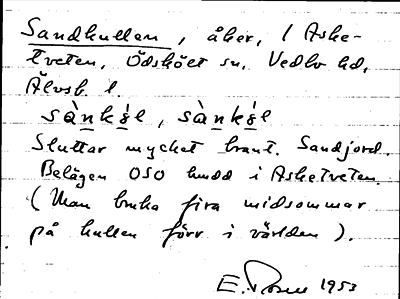 Sandkullen, åker, 1 Aske-
tveten, Ödskölt sn. Vedbo hd,
Älvsb. l.
sànkəl, sànkəl
Sluttar mycket brant. Sandjord.
Belägen OSO hmdd i Asketveten.
(Man bruka fira midsommar
på kullen förr i världen).
E. Rosén 1953